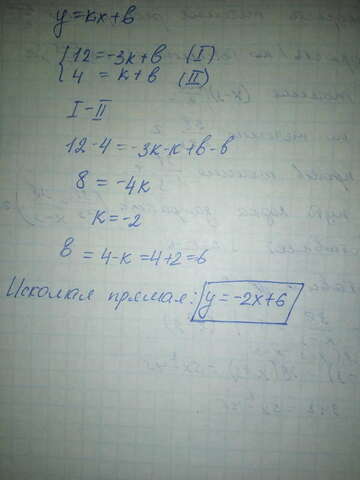 y=kx+b
{12=-3k+b (I)
{4 = k+b (II)
I-II
12-4=-3k-k+b-b
8 = -4k
k=-2
b = 4-k =4+2=6
Искомая прямая: y=-2x+6